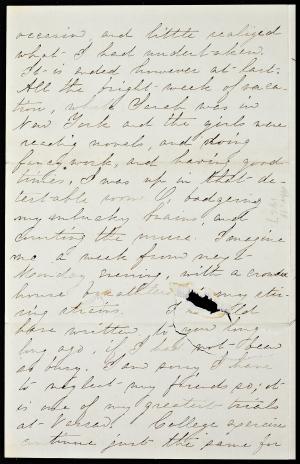 occasion, and little realized
what I had undertaken.
It is ended however at last.
All the bright week of vaca-
tion, while Sarah was in
New York and the girls were
reading novels, and doing
fancy work, and having good
times, I was up in that de-
testable room G, badgering
my unlucky brains, and
courting the muse. Imagine
me a week from next
Monday evening, with a crowded
house my stir-
ring strains. I would
have written to you long
long ago, if I had not been
so busy. I am sorry I have
to neglect my friends so; it
is one of my greatest trials
at Vassar. College exercises
continue just the same for